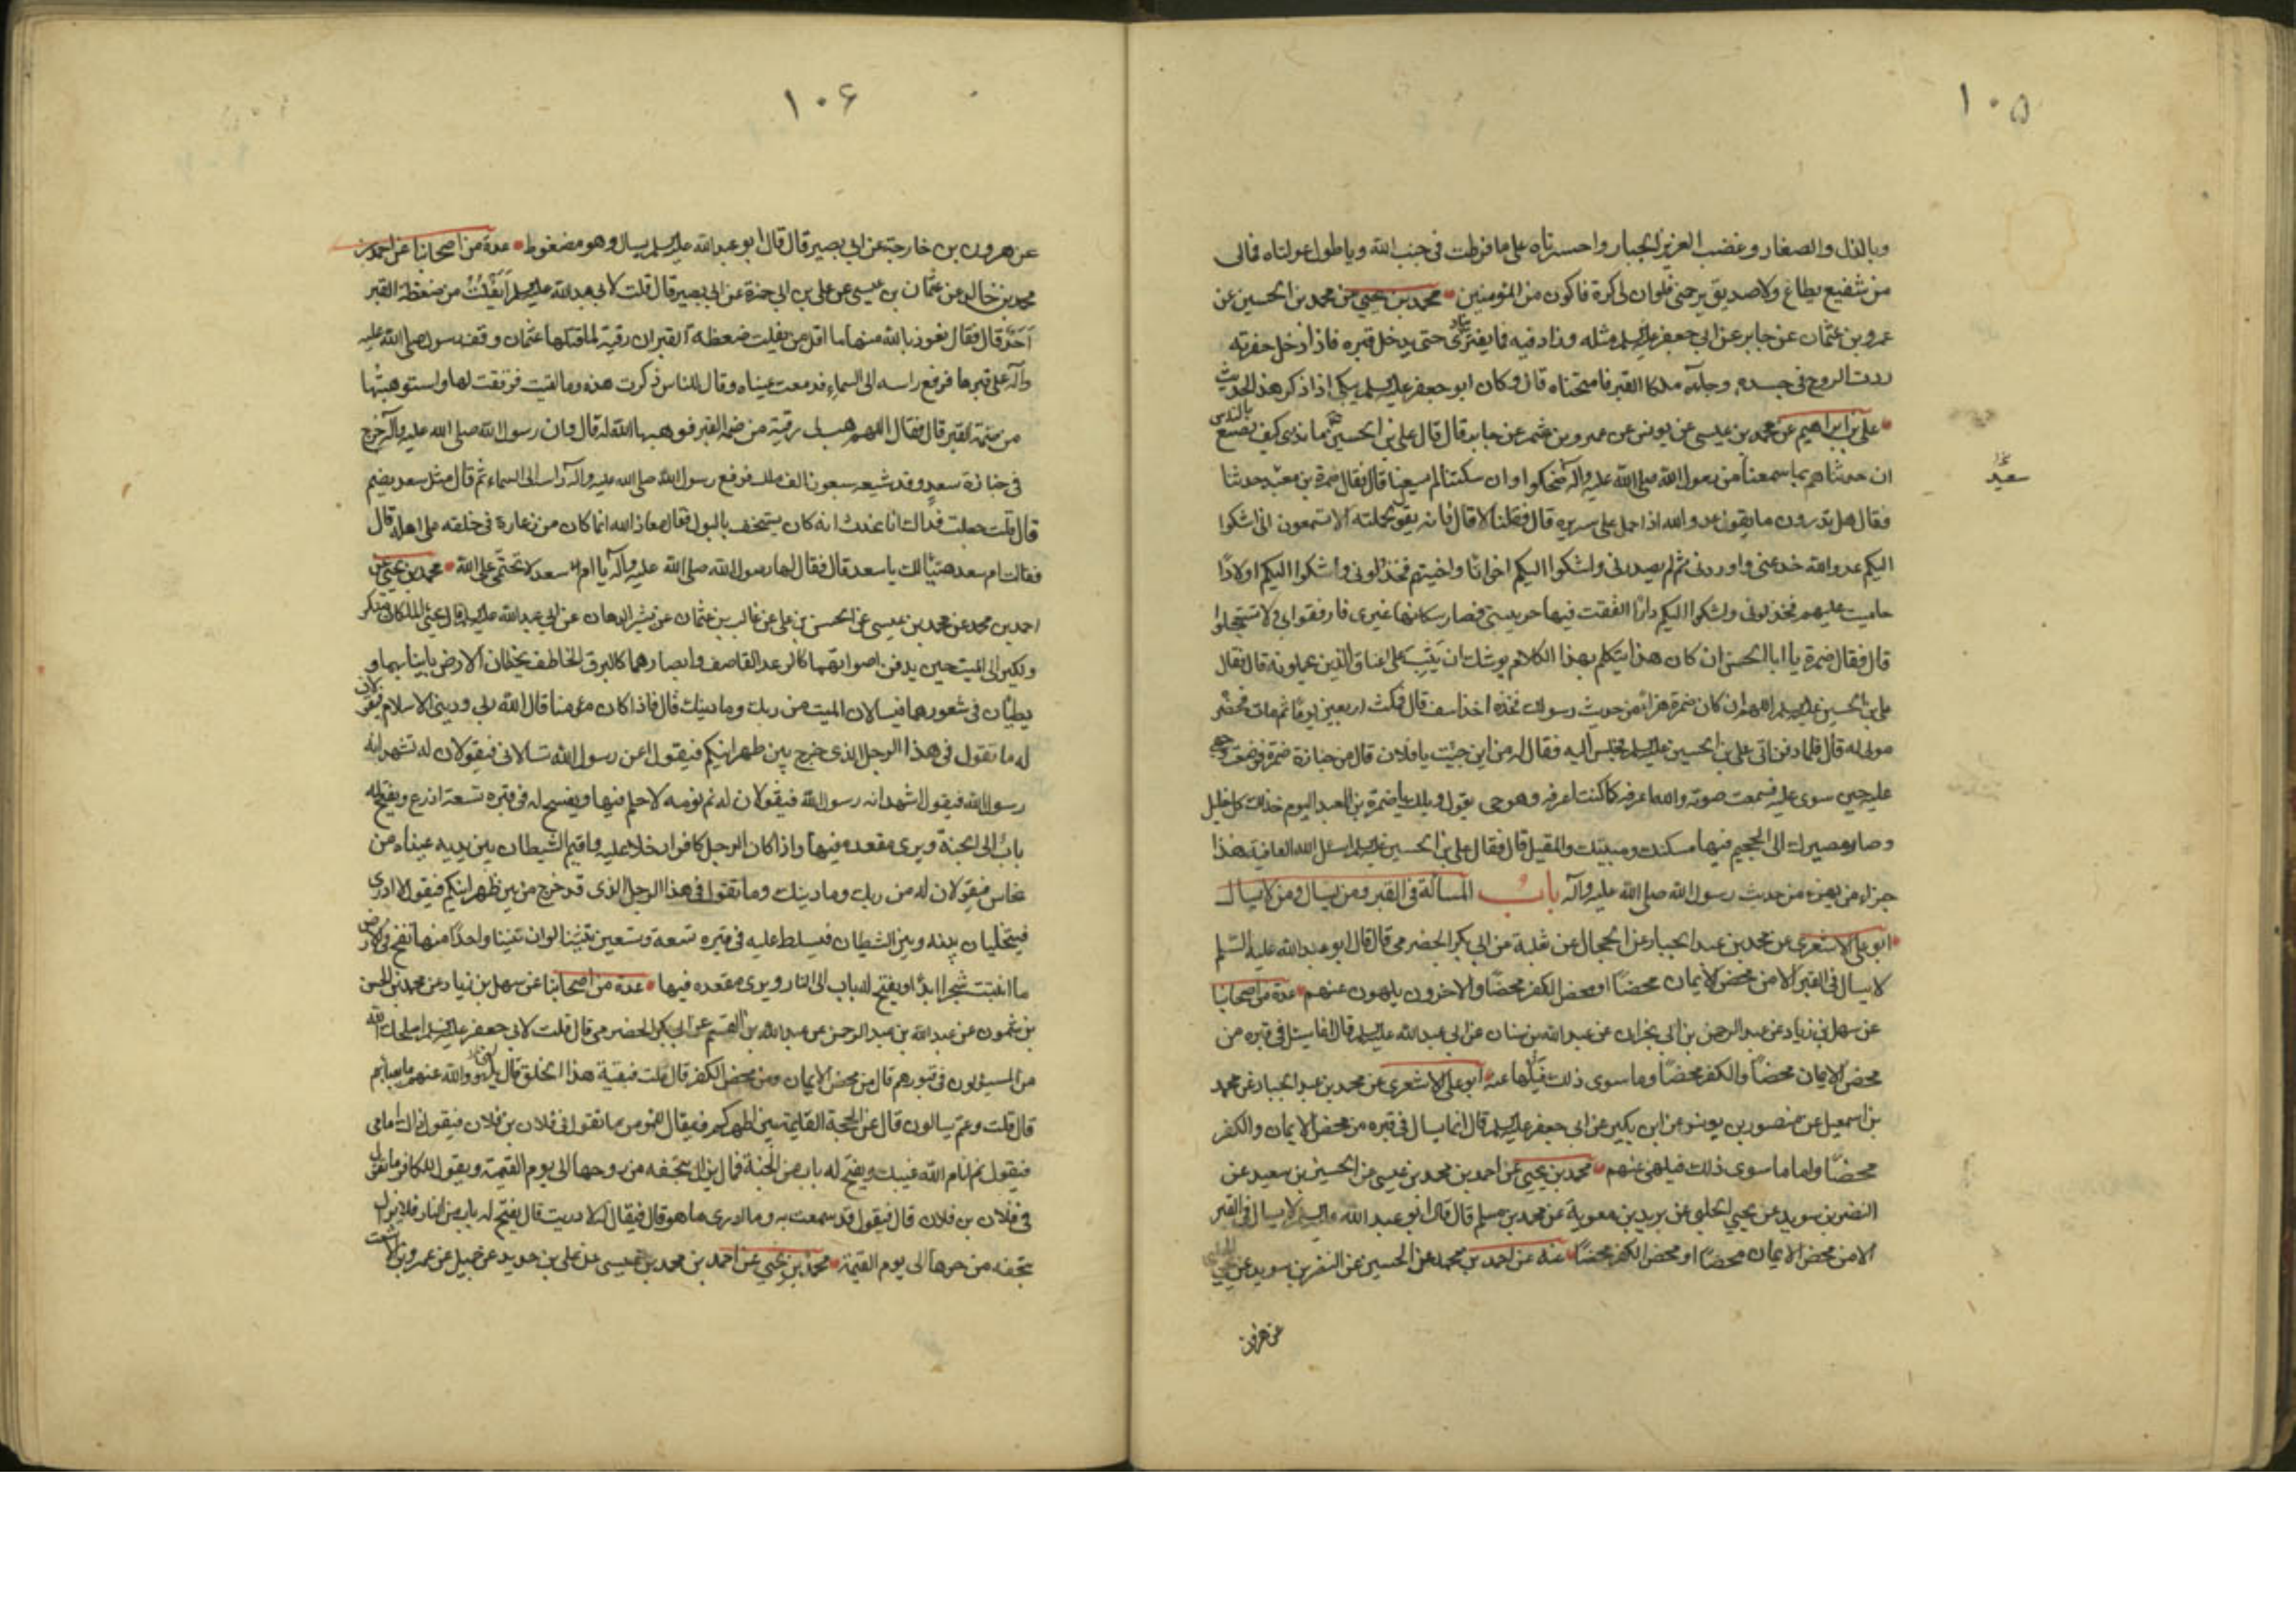 ١٠٥
وبالذل والصغار وغضب العزيز الجبار واحسرتاه على ما فرطت فى جنب الله وياطول عولتاه فمالى
من شفيع يطاع ولا صديق يرحمنى فلوان لى كرة فاكون من المؤمنين محمد بن يحيى عن محمد بن الحسين عن
عمرو بن عثمان عن جابر عن ابى جعفر عليه السلم مثله وزاد فيه فما يفتر ينادى حتى يدخل قبره فاذا دخل حفرته
ردت الروح فى جسده وجاءه ملكا القبر فامتحناه قال وكان ابو جعفر عليه السلم يبكى اذا ذكر هذا الحديث
على بن ابراهيم عن محمد بن عيسى عن يونس عن عمرو بن شمر عن جابر قال قال على بن الحسين ما ندرى كيف نصنع بالناس
ان حدثناهم بما سمعنا من رسول الله صلى الله عليه وآله ضحكوا وان سكتنا لم يسعنا قال فقال ضمرة بن معبد حدثنا
سعيد
فقال هل تدرون ما يقول عدو الله اذا حمل على سريره قال فقلنا لا قال فانه يقول لحملته الا تسمعون انى اشكوا
اليكم عدو الله خدعنى واوردنى ثم لم يصدرنى واشكوا اليكم اخوانا واخيتهم فخذلونى واشكوا اليكم اولادا
حاميت عليهم فخذلونى واشكوا اليكم دارا انفقت فيها حريبتى فصار سكانها غيرى فارفقوا بى ولا تستعجلوا
قال فقال ضمرة يا ابا الحسن ان كان هذا يتكلم بهذا الكلام يوشك ان يثب على اعناق الذين يحملونه قال فقال
على بن الحسين عليه السلم اللهم ان كان ضمرة هزأ من حديث رسولك فخذه اخذ اسف قال فمكث اربعين يوما ثم مات فحضره
مولى له قال فلما دفن اتى على بن الحسين عليه السلم فجلس اليه فقال له من اين جئت يا فلان قال من جنازة ضمرة فوضعت وجهى
عليه حين سوى عليه فسمعت صوته والله اعرفه كما كنت اعرفه وهو حى يقول ويلك يا ضمرة بن معبد اليوم خذلك كل خليل
وصار مصيرك الى الجحيم فيها مسكنك ومبيتك والمقيل قال فقال على بن الحسين عليه السلم اسئل الله العافية هذا
جزاء من يهزء من حديث رسول الله صلى الله عليه وآله باب المسألة فى القبر ومن يسال ومن لا يسال
ابو على الاشعرى عن محمد بن عبد الجبار عن الحجال عن ثعلبة عن ابى بكر الحضرمى قال قال ابو عبد الله عليه السلم
لا يسال فى القبر الا من محض الايمان محضا او محض الكفر محضا والاخرون يلهون عنهم عدة من اصحابنا
عن سهل بن زياد عن عبد الرحمن بن ابى نجران عن عبد الله بن سنان عن ابى عبد الله عليه السلم قال انما يسئل فى قبره من
محض الايمان محضا والكفر محضا وما سوى ذلك فيلهى عنه ابو على الاشعرى عن محمد بن عبد الجبار عن محمد
بن اسمعيل عن منصور بن يونس عن ابن بكير عن ابى جعفر عليه السلم قال انما يسال فى قبره من محض الايمان والكفر
محضا واما ما سوى ذلك فيلهى عنهم محمد بن يحيى عن احمد بن محمد بن عيسى عن الحسين بن سعيد عن
النضر بن سويد عن يحيى الحلبى عن بريد بن معوية عن محمد بن مسلم قال قال ابو عبد الله عليه السلم لا يسال فى القبر
الا من محض الايمان محضا او محض الكفر محضا عنه عن احمد بن محمد عن الحسين عن النضر بن سويد عن يحيى الحلبى
عن هرون
١٠۶
عن هرون بن خارجة عن ابى بصير قال قال ابو عبد الله عليه السلم يسال وهو مضغوط عدة من اصحابنا عن احمد بن
محمد بن خالد عن عثمان بن عيسى عن على بن ابى حمزة عن ابى بصير قال قلت لابى عبد الله عليه السلم ايفلت من ضغطة القبر
احد قال فقال نعوذ بالله منها ما اقل من يفلت من ضغطة القبر ان رقية لما قتلها عثمان وقف رسول الله صلى الله عليه
وآله على قبرها فرفع راسه الى السماء فدمعت عيناه وقال للناس ذكرت هذه وما لقيت فرققت لها واستوهبتها
من ضمة القبر قال فقال اللهم هب لى رقية من ضمة القبر فوهبها الله له قال وان رسول الله صلى الله عليه وآله خرج
فى جنازة سعد وقد شيعه سبعون الف ملك فرفع رسول الله صلى الله عليه وآله راسه الى السماء ثم قال مثل سعد يضم
قال قلت جعلت فداك انا نحدث انه كان يستخف بالبول فقال معاذ الله انما كان من زعارة فى خلقه على اهله قال
فقالت ام سعد هنيئا لك يا سعد قال فقال لها رسول الله صلى الله عليه وآله يا ام سعد لا تحتمى على الله محمد بن يحيى عن
احمد بن محمد عن محمد بن عيسى عن الحسن بن على عن غالب بن عثمان عن بشير الدهان عن ابى عبد الله عليه السلم قال يجئ الملكان منكر
ونكير الى الميت حين يدفن اصواتهما كالرعد القاصف وابصارهما كالبرق الخاطف يخطان الارض بانيابهما و
يطئان فى شعورهما فيسالان الميت من ربك وما دينك قال فاذا كان مؤمنا قال الله ربى ودينى الاسلام فيقولان
له ما تقول فى هذا الرجل الذى خرج بين ظهرانيكم فيقول اعن رسول الله تسالانى فيقولان له تشهد انه
رسول الله فيقول اشهد انه رسول الله فيقولان له نم نومة لا حلم فيها ويفسح له فى قبره تسعة اذرع ويفتح له
باب الى الجنة ويرى مقعده فيها واذا كان الرجل كافرا دخلا عليه واقيم الشيطان بين يديه عيناه من
نحاس فيقولان له من ربك وما دينك وما تقول فى هذا الرجل الذى قد خرج من بين ظهرانيكم فيقول لا ادرى
فيخليان بينه وبين الشيطان فيسلط عليه فى قبره تسعة وتسعين تنينا لو ان تنينا واحدا منها نفخ فى الارض
ما انبتت شجرا ابدا ويفتح له باب الى النار ويرى مقعده فيها عدة من اصحابنا عن سهل بن زياد عن محمد بن الحسن
بن شمون عن عبد الله بن عبد الرحمن عن عبد الله بن القسم عن ابى بكر الحضرمى قال قلت لابى جعفر عليه السلم اصلحك الله
من المسؤلون فى قبورهم قال من محض الايمان ومن محض الكفر قال قلت فبقية هذا الخلق قال يلهو والله عنهم ما يعبأبهم
قال قلت وعم يسالون قال عن الحجة القائمة بين اظهركم فيقال للمؤمن ما تقول فى فلان بن فلان فيقول ذاك امامى
فيقول نم انام الله عينيك ويفتح له باب من الجنة فما يزال يتحفه من روحها الى يوم القيمة ويقول للكافر ما تقول
فى فلان بن فلان قال فيقول قد سمعت به وما ادرى ما هو قال فيقال له لا دريت قال يفتح له باب من النار فلا يزال
يتحفه من حرها الى يوم القيمة محمد بن يحيى عن احمد بن محمد بن عيسى عن على بن حديد عن جميل عن عمرو بن الاشعث